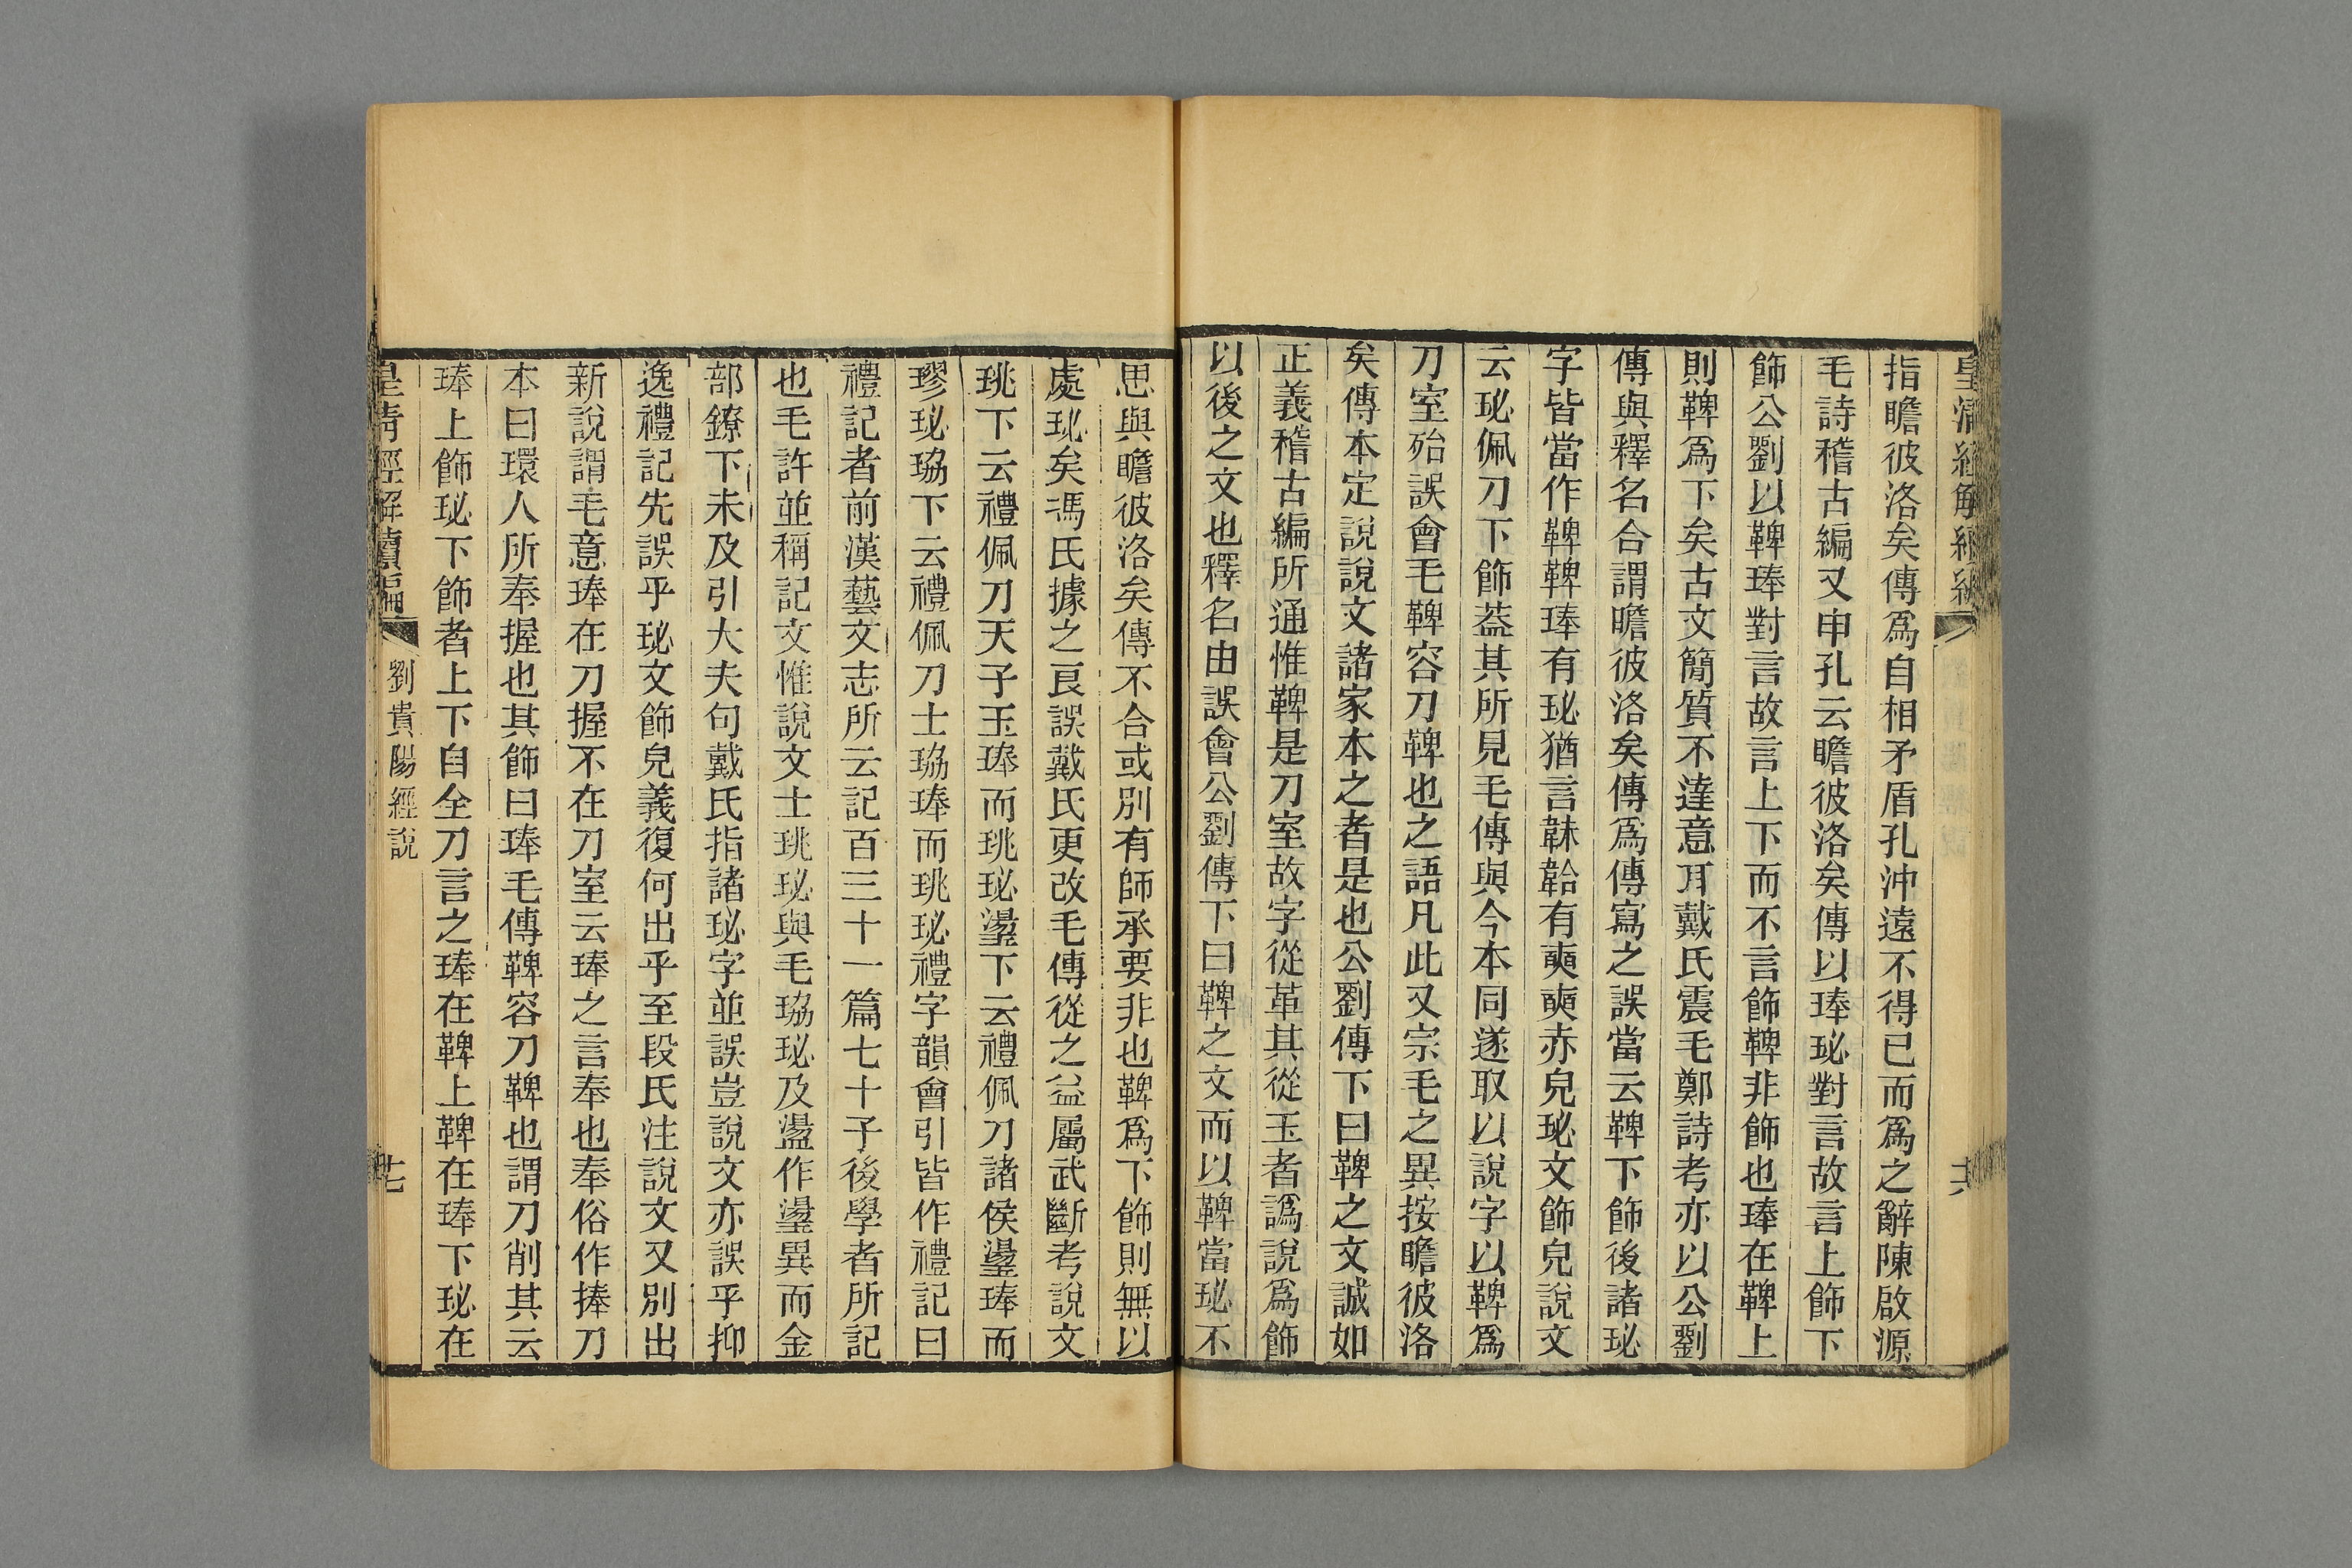 皇清經解續編
十六
指瞻彼洛矣傳爲自相矛盾孔沖遠不得已而爲之辭陳啟源
毛詩稽古編又申孔云瞻彼洛矣傳以琫珌對言故言上飾下
飾公劉以鞞琫對言故言上下而不言飾鞞非飾也琫在鞞上
則鞞爲下矣古文簡質不達意耳戴氏震毛鄭詩考亦以公劉
傳與釋名合謂瞻彼洛矣傳爲傳寫之誤當云鞞下飾後諸珌
字皆當作鞞鞞琫有珌猶言韎韐有奭奭赤皃珌文飾皃說文
云珌佩刀下飾葢其所見毛傳與今本同遂取以說字以鞞爲
刀室殆誤會毛鞞容刀鞞也之語凡此又宗毛之異按瞻彼洛
矣傳本定說說文諸家本之者是也公劉傳下曰鞞之文誠如
正義稽古編所通惟鞞是刀室故字從革其從玉者譌說爲飾
以後之文也釋名由誤會公劉傳下曰鞞之文而以鞞當珌不
思與瞻彼洛矣傳不合或別有師承要非也鞞爲下飾則無以
處珌矣馮氏據之良誤戴氏更改毛傳從之益屬武斷考說文
珧下云禮佩刀天子玉琫而珧珌璗下云禮佩刀諸侯璗琫而
璆珌珕下云禮佩刀士珕琫而珧珌禮字韻會引皆作禮記曰
禮記者前漢藝文志所云記百三十一篇七十子後學者所記
也毛許並稱記文惟說文士珧珌與毛珕珌及盪作璗異而金
部鐐下未及引大夫句戴氏指諸珌字並誤豈說文亦誤乎抑
逸禮記先誤乎珌文飾皃義復何出乎至段氏注說文又別出
新說謂毛意琫在刀握不在刀室云琫之言奉也奉俗作捧刀
本曰環人所奉握也其飾曰琫毛傳鞞容刀鞞也謂刀削其云
琫上飾珌下飾者上下自全刀言之琫在鞞上鞞在琫下珌在
皇清經解續編
劉貴陽經說
十七